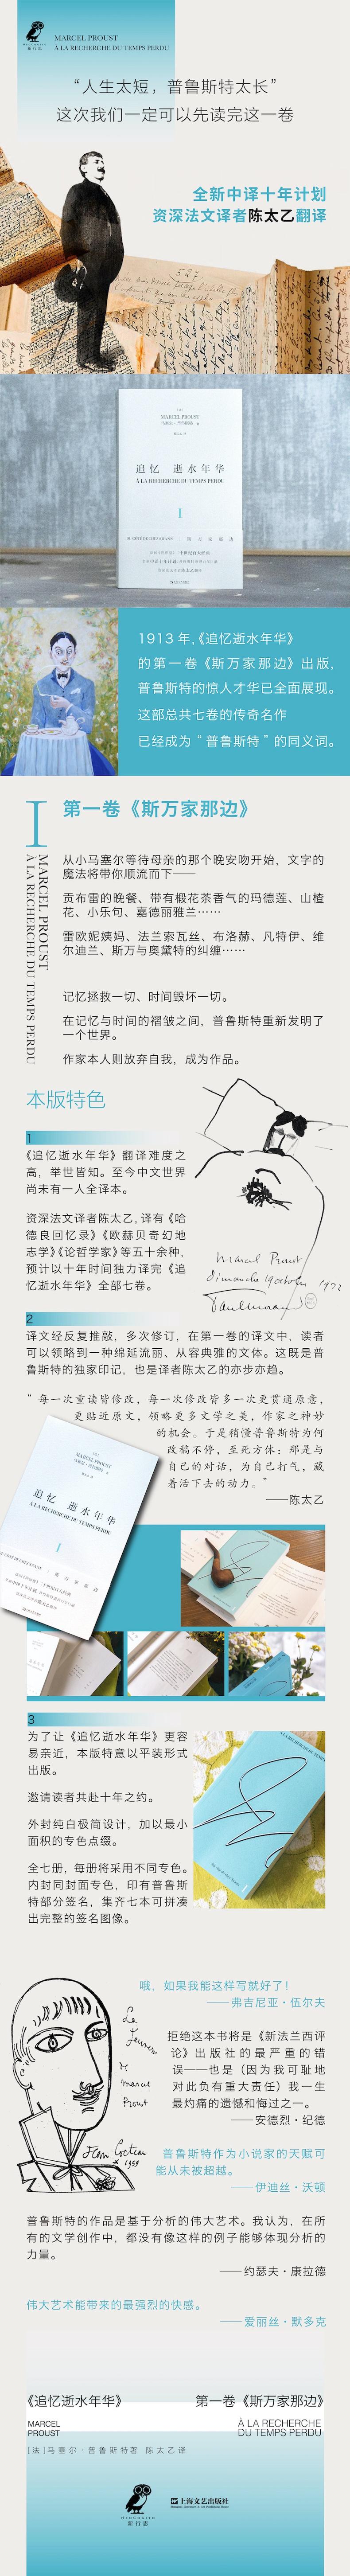 MARCEL PROUST
À LA RECHERCHE DU TEMPS PERDU
“人生太短，普鲁斯特太长”
这次我们一定可以先读完这一卷
全新中译十年计划
资深法文译者陈太乙翻译
MARCEL PROUST
追忆 逝水年华
À LA RECHERCHE DU TEMPS PERDU
I
1913年,《追忆逝水年华》
的第一卷《斯万家那边》出版,
普鲁斯特的惊人才华已全面展现。
这部总共七卷的传奇名作
已经成为“普鲁斯特”的同义词。
I
MARCEL PROUST
À LA RECHERCHE DU TEMPS PERDU
第一卷《斯万家那边》
从小马塞尔等待母亲的那个晚安吻开始，文字的
魔法将带你顺流而下——
贡布雷的晚餐、带有椴花茶香气的玛德莲、山楂
花、小乐句、嘉德丽雅兰……
雷欧妮姨妈、法兰索瓦丝、布洛赫、凡特伊、维
尔迪兰、斯万与奥黛特的纠缠……
记忆拯救一切、时间毁坏一切。
在记忆与时间的褶皱之间，普鲁斯特重新发明了
一个世界。
作家本人则放弃自我，成为作品。
本版特色
1
《追忆逝水年华》翻译难度之
高，举世皆知。至今中文世界
尚未有一人全译本。
资深法文译者陈太乙,译有《哈
德良回忆录》《欧赫贝奇幻地
志学》《论哲学家》等五十余种，
预计以十年时间独力译完《追
忆逝水年华》全部七卷。
Marcel Proust
2
译文经反复推敲，多次修订，在第一卷的译文中，读者
可以领略到一种绵延流丽、从容典雅的文体。这既是普
鲁斯特的独家印记，也是译者陈太乙的亦步亦趋。
“每一次重读皆修改，每一次修改皆多一次更贯通原意，
更贴近原文，领略更多文学之美，作家之神妙
的机会。于是稍懂普鲁斯特为何
改稿不停，至死方休；那是与
自己的对话，为自己打气，藏
着活下去的动力。”
——陈太乙
MARCEL PROUST
追忆 逝水年华
À LA RECHERCHE DU TEMPS PERDU
I
3
为了让《追忆逝水年华》更容
易亲近，本版特意以平装形式
出版。
邀请读者共赴十年之约。
外封纯白极简设计，加以最小
面积的专色点缀。
全七册，每册将采用不同专色。
内封同封面专色，印有普鲁斯
特部分签名，集齐七本可拼凑
出完整的签名图像。
哦，如果我能这样写就好了！
——弗吉尼亚·伍尔夫
拒绝这本书将是《新法兰西评
论》出版社的最严重的错
误——也是（因为我可耻地
对此负有重大责任）我一生
最灼痛的遗憾和悔过之一。
——安德烈·纪德
普鲁斯特作为小说家的天赋可
能从未被超越。
——伊迪丝·沃顿
Marcel
Proust
Jean Cocteau
普鲁斯特的作品是基于分析的伟大艺术。我认为，在所
有的文学创作中，都没有像这样的例子能够体现分析的
力量。
——约瑟夫·康拉德
伟大艺术能带来的最强烈的快感。
——爱丽丝·默多克
《追忆逝水年华》
第一卷《斯万家那边》
MARCEL
PROUST
À LA RECHERCHE
DU TEMPS PERDU
[法]马塞尔·普鲁斯特著 陈太乙译
新行思
上海文艺出版社